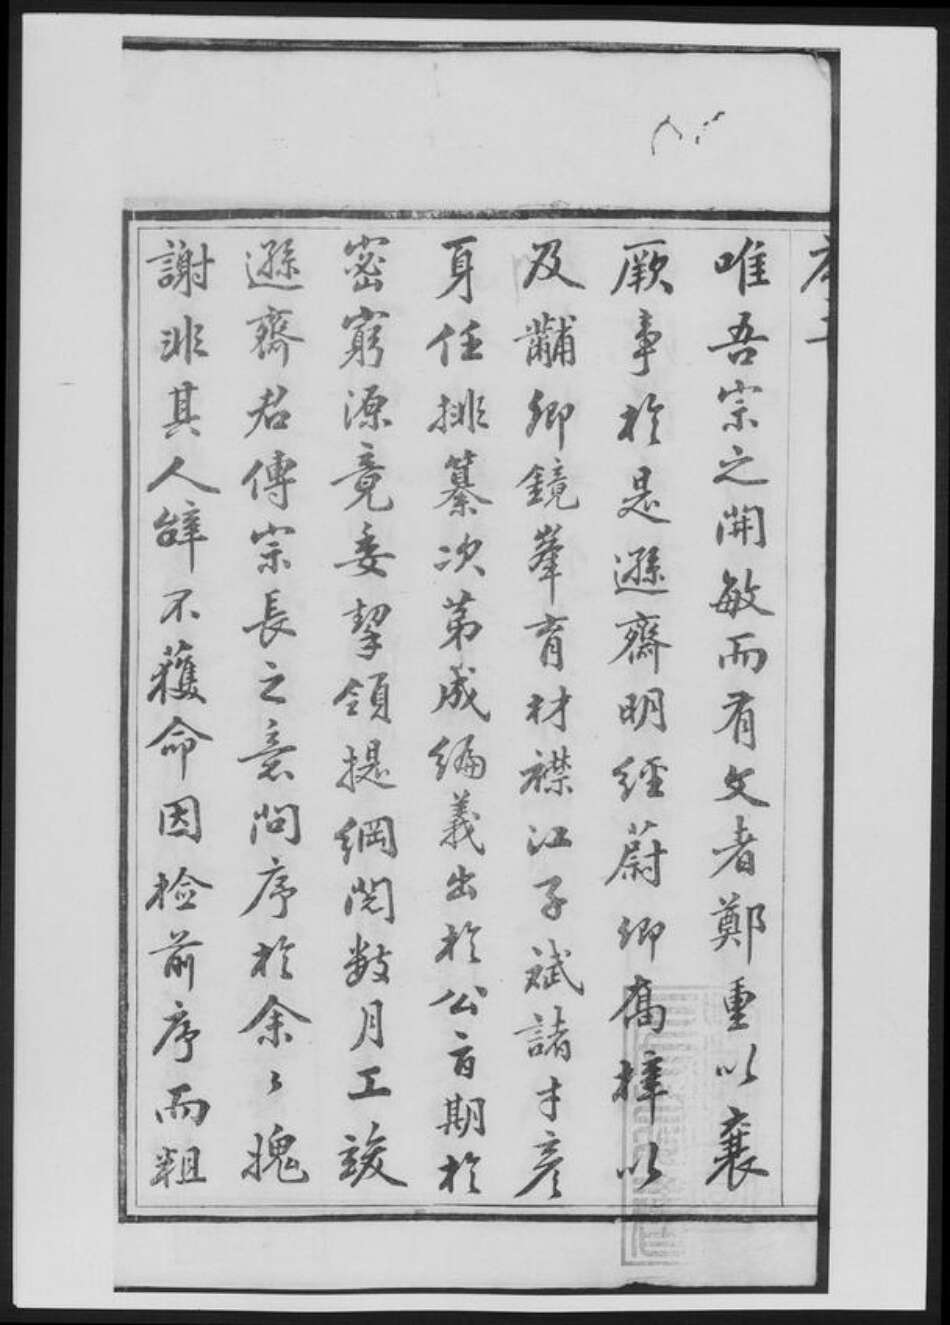 唯吾宗之開敏而有文者鄭重以襄
厥事於是遜齋明經蔚卿奮擇以
及黼卿鏡峯育材襟江子斌諸才彥
身任排纂次第成編義出於公言期於
密窮源竟委挈領提綱閱數月工竣
遜齋君傳宗長之意問序於余余愧
謝非其人辭不獲命因檢前序而粗